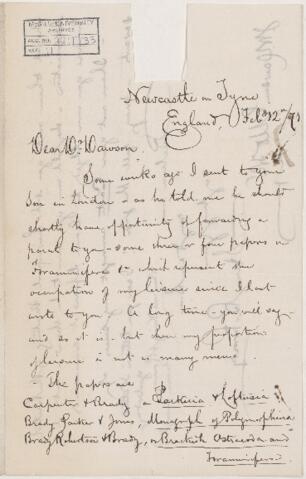 McGILL UNIVERSITY
ARCHIVES
ACC. NO.
REF.
Newcastle on Tyne
England, Feb 12th/71
Dear Dr Dawson,
Some weeks ago I sent to your
Son in London - as he told me he should
shortly have opportunity of forwarding a
parcel to you - some three or four papers on
Foraminifera &c which represent the
occupation of my leisure since I last
wrote to you. A long time - you will say -
and so it is - but then my proportion
of leisure is not as many mens.
- The papers are
Carpenter & Brady on Parkeria & Loftusia
Brady Parker & Jones, Monograph of Polymorphina
Brady Robertson & Brady, on Brackish Ostracoda and
Foraminifera.